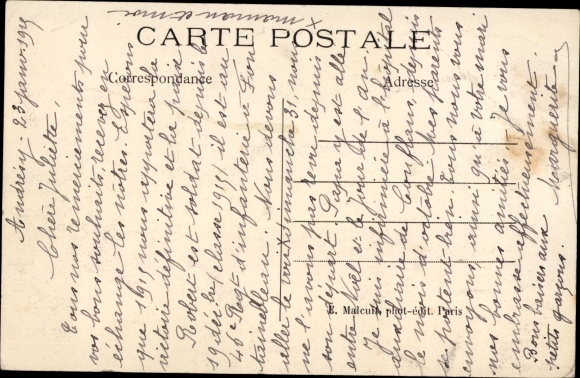 CARTE POSTALE
Correspondance
Adresse
E. Malcuit, phot-édit. Paris
Andrésy - 23 janv. 1915
Chère Juliette,
Tous nos remerciements pour
vos bons souhaits, recevez en
échange les nôtres. Espérons
que 1915 nous apportera la
victoire définitive et la paix.
Robert est soldat depuis le
19 déc. (classe 1915) il est au
46e Régt d'infanterie à Font
tainebleau. Nous devons
aller le voir x dimanche 31, nous
ne l'avons pas revu depuis
son départ. Papa y est allé
entre Noël et le Jour de l'An.
Je suis infirmière à l'hôpital
auxiliaire de Conflans, depuis
le mois d'octobre. Mes parents
se portent bien, tous nous vous
envoyons, ainsi qu'à votre mari
nos bonnes amitiés. Je vous
embrasse affectueusement.
Marguerite
Bons baisers aux
petits garçons.
x maman et moi